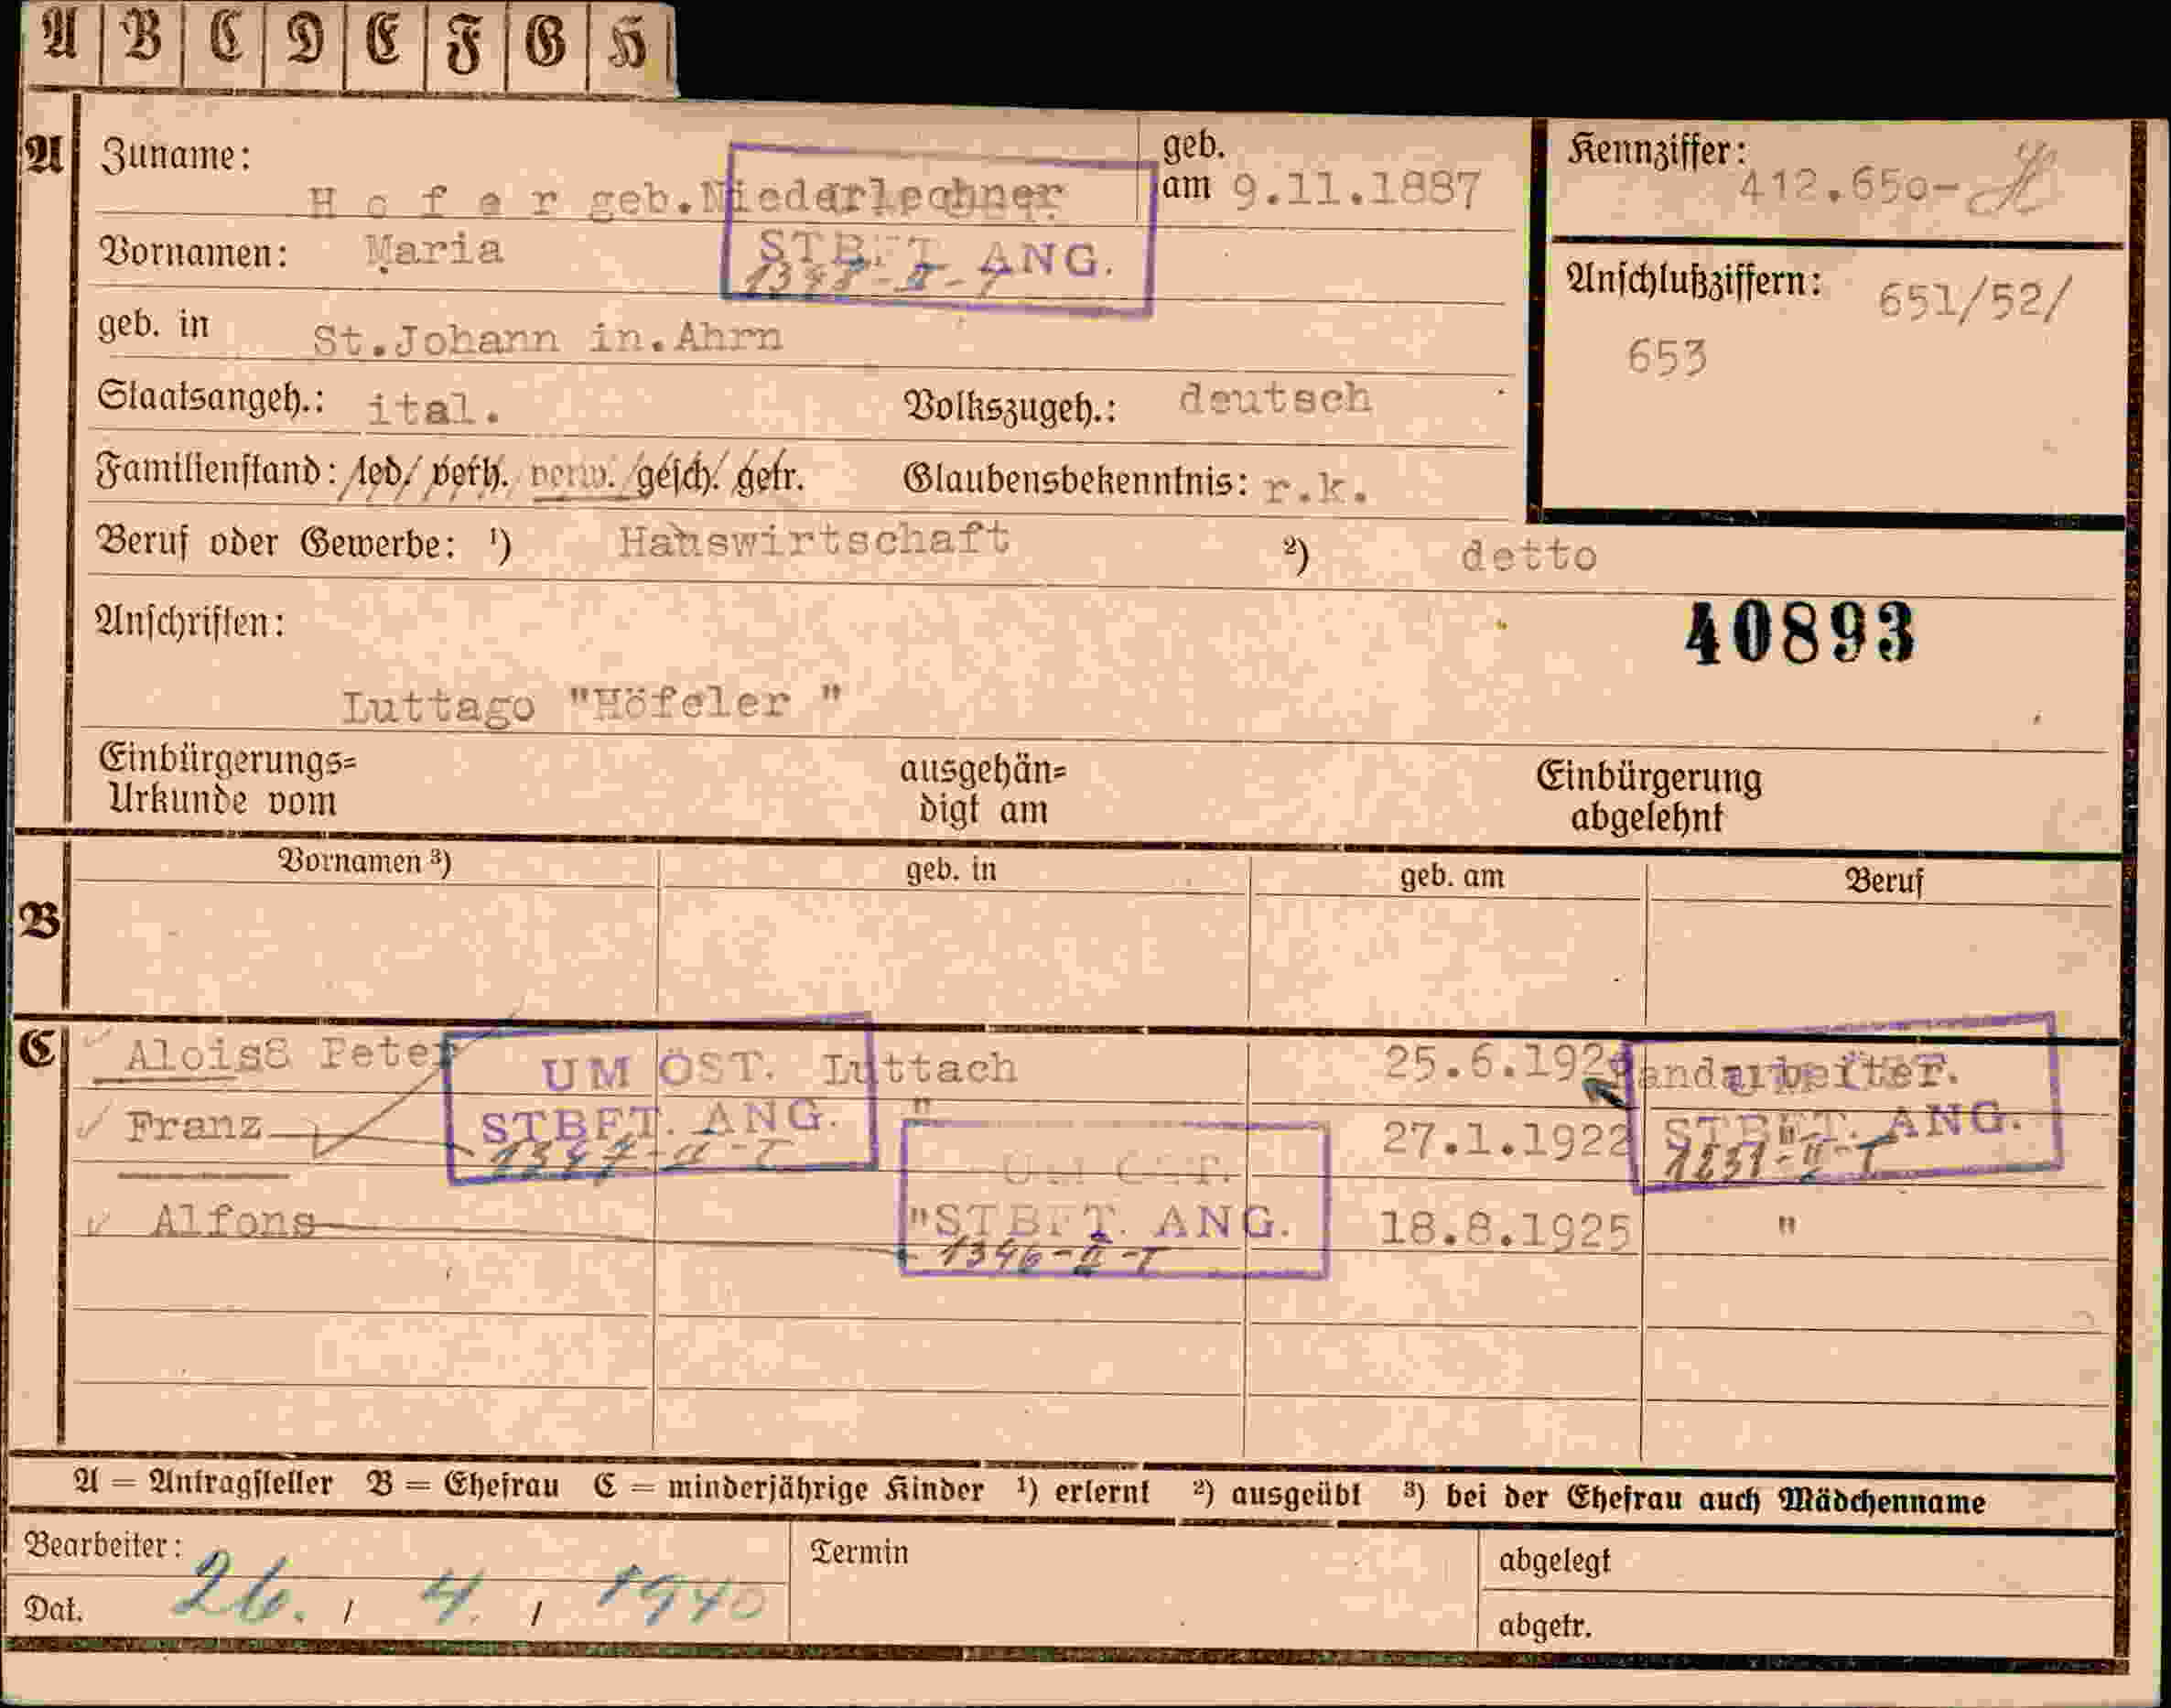 A B C D E F G H
A Zuname: geb.
H o f e r geb.Niederlechner am 9.11.1887
Kennziffer: 412.650-
Vornamen: Maria
STBFT. ANG.
Anschlußziffern: 651/52/
653
geb. in St.Johann in.Ahrn
Staatsangeh.: ital. Volkszugeh.: deutsch
Familienstand: led/ verh. verw. gesch. getr. Glaubensbekenntnis: r.k.
Beruf oder Gewerbe: ¹) Hauswirtschaft ²) detto
Anschriften:
40893
Luttago "Höfeler "
Einbürgerungs= ausgehän= Einbürgerung
Urkunde vom digt am abgelehnt
Vornamen ³) geb. in geb. am Beruf
B
C Alois& Peter Luttach 25.6.192
UM ÖST.
Franz " 27.1.1922 "
STBFT. ANG. STBFT. ANG.
1347-II-T 1231-II-T
UM ÖST.
Alfons " 18.8.1925 "
STBFT. ANG.
1346-II-T
A = Antragsteller B = Ehefrau C = minderjährige Kinder ¹) erlernt ²) ausgeübt ³) bei der Ehefrau auch Mädchenname
Bearbeiter: Termin abgelegt
Dat. 26. / 4. / 1940 abgetr.